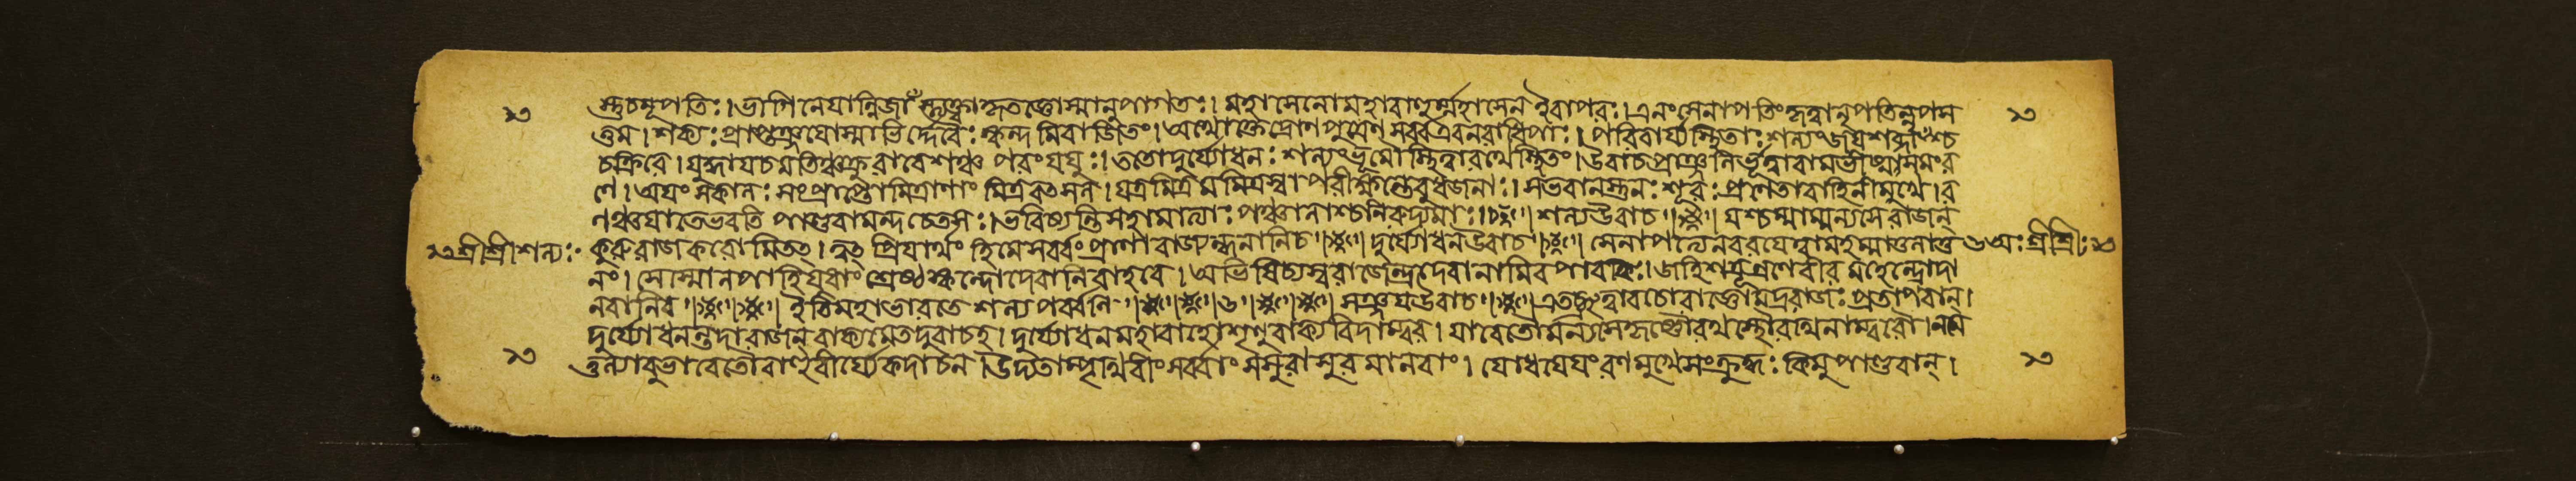 স্তুচমূপতিঃ। ভাগিনেযান্নিজাঁস্ত্যক্ত্বা কৃতজ্ঞোস্মানুপাগতঃ। মহাসেনো মহাবাহুর্ম্মহাসেন ইবাপরঃ। এনং সেনাপতিং কৃত্বা নৃপতিন্নৃপস
ত্তম। শক্যঃ প্রাপ্তুঞ্জযোস্মাভির্দ্দেবৈঃ স্কন্দমিবাজিতং। অথোক্তে দ্রোণপুত্রেণ সর্ব্ব এব নরাধিপাঃ। পরিবার্য্য স্থিতাঃ শল্যং জযশব্দাংশ্চ
চক্রিরে। যুদ্ধায চ মতিঞ্চক্রুরাবেশঞ্চ পরং যযুঃ। ততো দুর্য্যোধনঃ শল্যং ভূমৌ স্থিত্বা রথে স্থিতং। উবাচ প্রাঞ্জলির্ভূত্বা রামভীষ্মসমং র
ণে। অযং স কালঃ সংপ্রাপ্তো মিত্রাণাং মিত্রবৎসল। যত্র মিত্রমমিত্রম্বা পরীক্ষন্তে বুধজনাঃ। স ভবানস্তু নঃ শূরঃ প্রণেতা বাহিনীমুখে। র
ণঞ্চ যাতে ভবতি পাণ্ডবা মন্দচেতসঃ। ভবিষ্যন্তি সহামাত্যাঃ পঞ্চালাশ্চ নিরুদ্যমাঃ। শল্য উবাচ। যশ্চ মাম্মন্যসে রাজন্
শ্রীশ্রীশল্যঃ কুরুরাজ করোমি তৎ। ত্বৎপ্রিযার্থং হি মে সর্ব্বং প্রাণা রাজ্যন্ধনানি চ। দুর্য্যোধন উবাচ। সেনাপত্যেন বরযে ত্বামহম্মাতুলাতু ৬অঃ শ্রীশ্রীঃ
লং। সোস্মান পাহি যুধাং শ্রেষ্ঠ স্কন্দো দেবানিবাহবে। অভিষিচ্যস্ব রাজেন্দ্র দেবানামিব পাবকিঃ। জহি শত্রূন্রণে বীর মহেন্দ্রো দা
নবানিব। ইতি মহাভারতে শল্যপর্ব্বণি। ৬। সঞ্জয উবাচ। এতচ্ছ্রুত্বা বচো রাজ্ঞো মদ্ররাজঃ প্রতাপবান্।
দুর্য্যোধনন্তদা রাজন্ বাক্যমেতদুবাচ হ। দুর্য্যোধন মহাবাহো শৃণু বাক্যবিদাম্বর। যাবেতৌ মন্যসে কৃষ্ণৌ রথস্থৌ রথিনাম্বরৌ। ন মে
তুল্যাবুভাবেতৌ বাহুবীর্য্যে কদাচন। উদ্যতাম্পৃথিবীং সর্ব্বাং সসুরাসুরমানবাং। যোধযেযং রণমুখে সংক্রুদ্ধঃ কিমু পাণ্ডবান্।